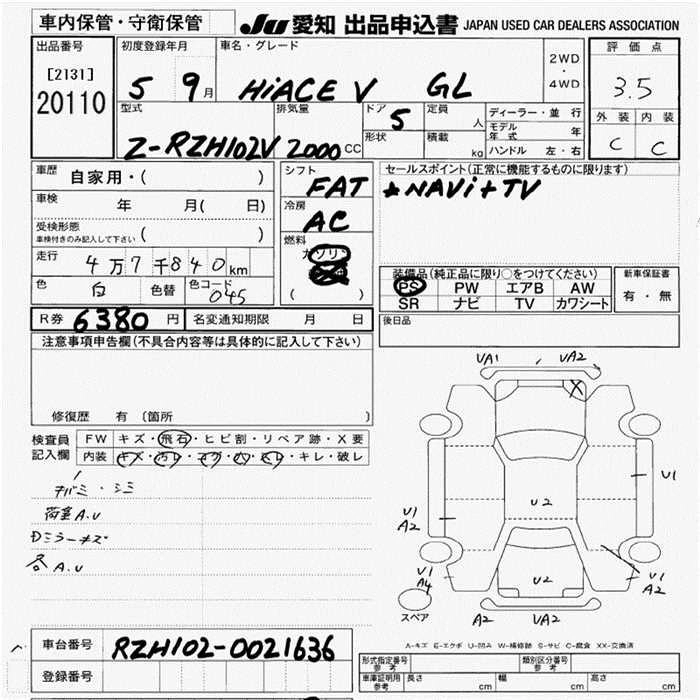 車内保管・守衛保管 JU 愛知 出品申込書 JAPAN USED CAR DEALERS ASSOCIATION
出品番号 [2131] 20110
初度登録年月 5 9月
車名・グレード HiACE V GL
2WD・4WD
評価点 3.5
外装 内装
C C
型式 Z-RZH102V
排気量 2000cc
ドア 5 定員 人
形状 積載 kg
ディーラー・並行
モデル年式 年
ハンドル 左・右
車歴 自家用・( )
車検 年 月( 日)
受検形態 ( )
車検付きのみ記入して下さい
走行 4万7千840km
色 白 色替 色コード 045
シフト FAT
冷房 AC
燃料 ガソリン
( )
セールスポイント(正常に機能するものに限ります)
★NAVi+TV
装備品(純正品に限り○をつけてください)
PS PW エアB AW
SR ナビ TV カワシート
新車保証書
有・無
R券 6380円 名変通知期限 月 日
後日品
注意事項申告欄(不具合内容等は具体的に記入して下さい)
修復歴 有 〔箇所 〕
検査員記入欄
FW キズ・飛石・ヒビ割・リペア跡・X要
内装 キズ・汚レ・コゲ・穴・スレ・キレ・破レ
シミ
荷室A.U
Dミラーキズ
各A.U
UA1 UA2
X
U1
U2
U1
A2
U1
A4
U2
U1
A2
スペア
A2 UA2
A-キズ E-エクボ U-凹A W-補修跡 S-サビ C-腐食 XX-交換済
車台番号 RZH102-0021636
登録番号
形式指定番号 参考 類別区分番号 参考
車庫証明用 参考 長さ cm 幅 cm 高さ cm